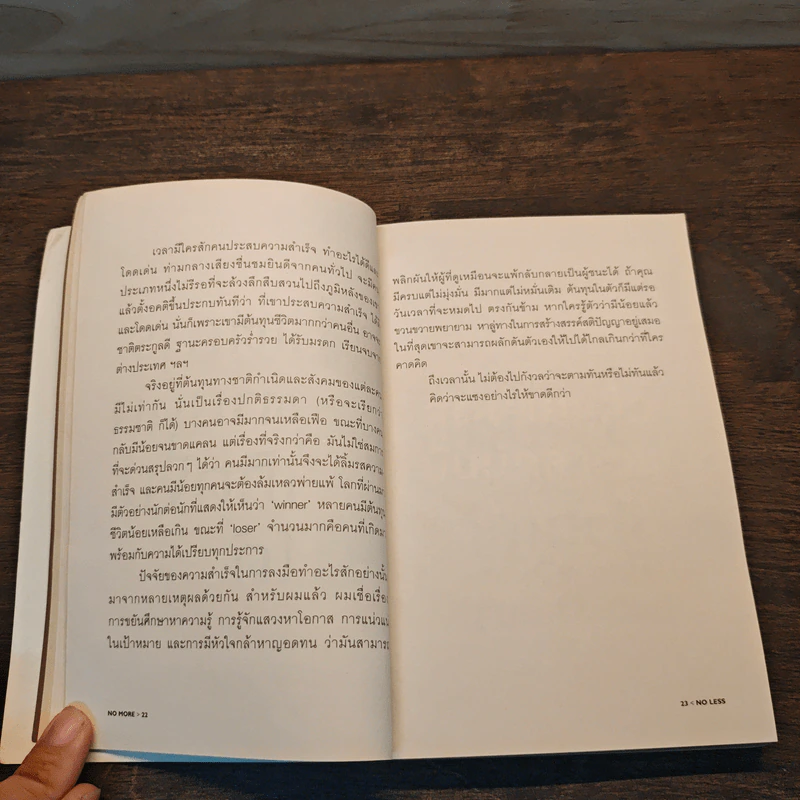 เวลามีใครสักคนประสบความสำเร็จ ทำอะไรได้ดีและ
โดดเด่น ท่ามกลางเสียงชื่นชมยินดีจากคนทั่วไป จะมีคน
ประเภทหนึ่งไม่รีรอที่จะล้วงลึกสืบสวนไปถึงภูมิหลังของเขา
แล้วตั้งอคติขึ้นประกบทันทีว่า ที่เขาประสบความสำเร็จ ได้ดี
และโดดเด่น นั่นก็เพราะเขามีต้นทุนชีวิตมากกว่าคนอื่น อาจจะ
ชาติตระกูลดี ฐานะครอบครัวร่ำรวย ได้รับมรดก เรียนจบจาก
ต่างประเทศ ฯลฯ
จริงอยู่ที่ต้นทุนทางชาติกำเนิดและสังคมของแต่ละคน
มีไม่เท่ากัน นั่นเป็นเรื่องปกติธรรมดา (หรือจะเรียกว่า
ธรรมชาติ ก็ได้) บางคนอาจมีมากจนเหลือเฟือ ขณะที่บางคน
กลับมีน้อยจนขาดแคลน แต่เรื่องที่จริงกว่าคือ มันไม่ใช่สมการ
ที่จะด่วนสรุปลวกๆ ได้ว่า คนมีมากเท่านั้นจึงจะได้ลิ้มรสความ
สำเร็จ และคนมีน้อยทุกคนจะต้องล้มเหลวพ่ายแพ้ โลกที่ผ่านมา
มีตัวอย่างนักต่อนักที่แสดงให้เห็นว่า 'winner' หลายคนมีต้นทุน
ชีวิตน้อยเหลือเกิน ขณะที่ 'loser' จำนวนมากคือคนที่เกิดมา
พร้อมกับความได้เปรียบทุกประการ
ปัจจัยของความสำเร็จในการลงมือทำอะไรสักอย่างนั้น
มาจากหลายเหตุผลด้วยกัน สำหรับผมแล้ว ผมเชื่อเรื่อง
การขยันศึกษาหาความรู้ การรู้จักแสวงหาโอกาส การแน่วแน่
ในเป้าหมาย และการมีหัวใจกล้าหาญอดทน ว่ามันสามารถ
NO MORE > 22
พลิกผันให้ผู้ที่ดูเหมือนจะแพ้กลับกลายเป็นผู้ชนะได้ ถ้าคุณ
มีครบแต่ไม่มุ่งมั่น มีมากแต่ไม่หมั่นเติม ต้นทุนในตัวก็มีแต่รอ
วันเวลาที่จะหมดไป ตรงกันข้าม หากใครรู้ตัวว่ามีน้อยแล้ว
ขวนขวายพยายาม หาลู่ทางในการสร้างสรรค์สติปัญญาอยู่เสมอ
ในที่สุดเขาจะสามารถผลักดันตัวเองให้ไปได้ไกลเกินกว่าที่ใคร
คาดคิด
ถึงเวลานั้น ไม่ต้องไปกังวลว่าจะตามทันหรือไม่ทันแล้ว
คิดว่าจะแซงอย่างไรให้ขาดดีกว่า
23 < NO LESS